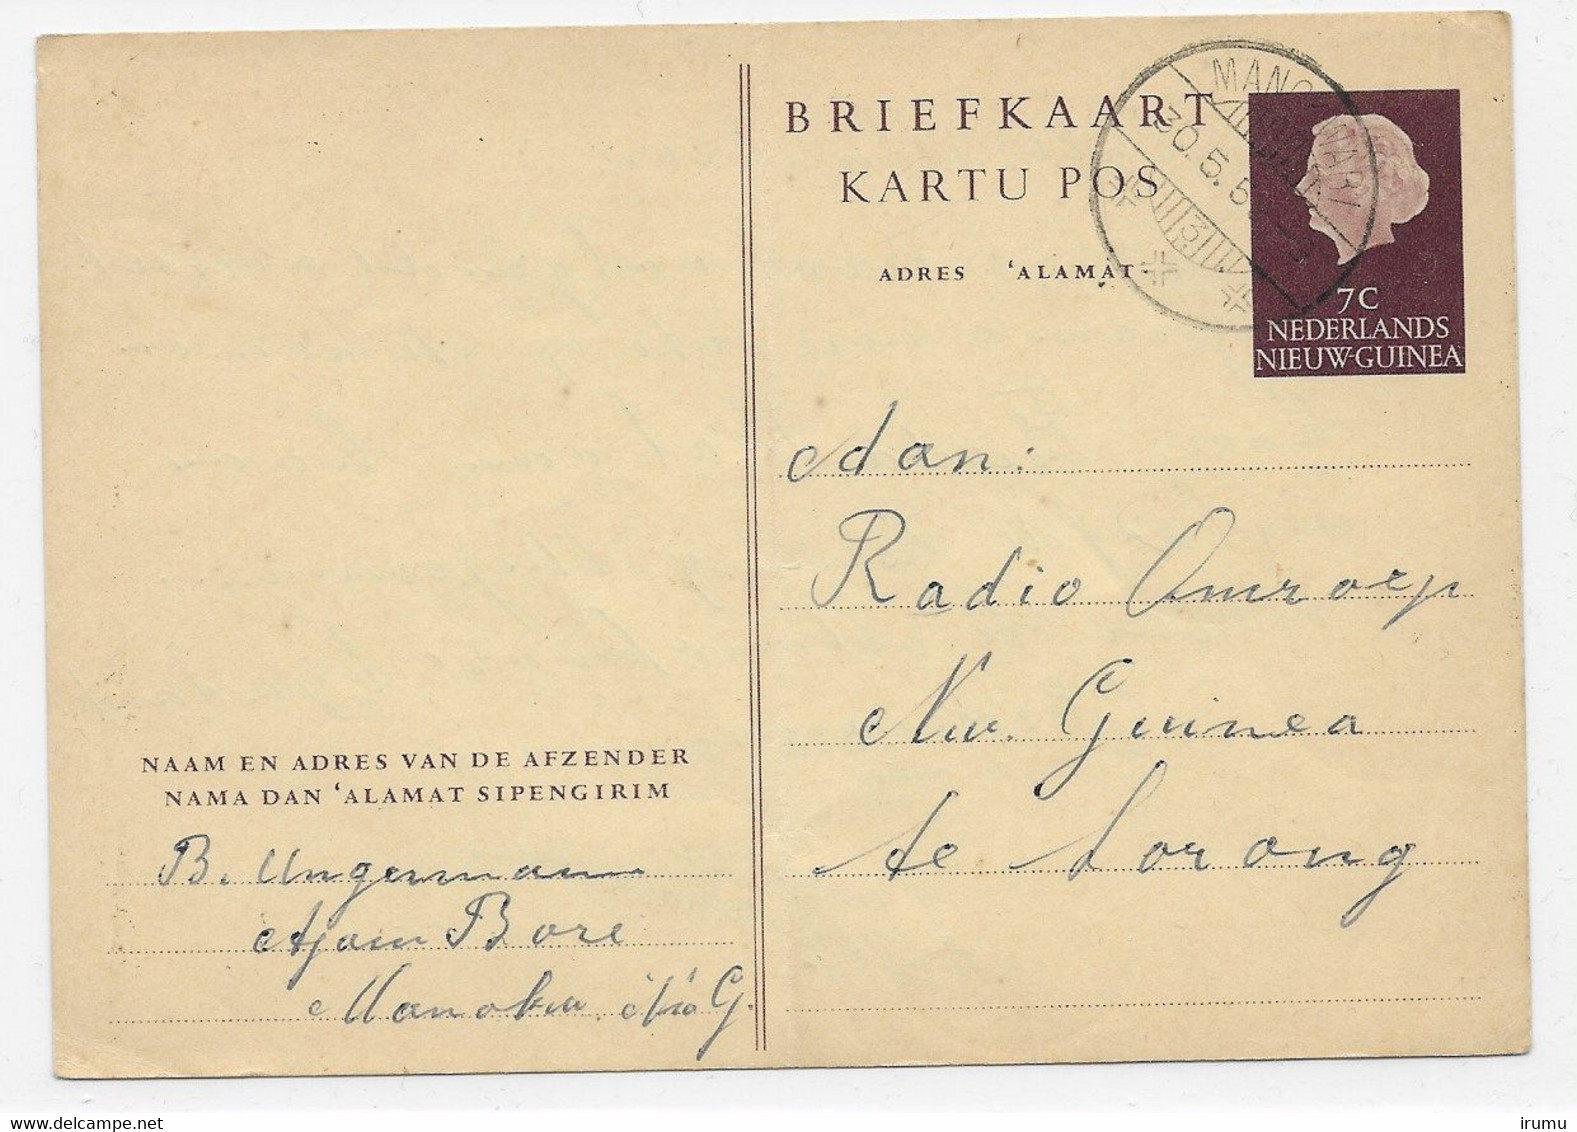 BRIEFKAART
KARTU POS
ADRES ‘ALAMAT
MANOKWARI
30.5.5
3
7C
NEDERLANDS
NIEUW-GUINEA
Aan:
Radio Omroep
Nw. Guinea
te Sorong
NAAM EN ADRES VAN DE AFZENDER
NAMA DAN ‘ALAMAT SIPENGIRIM
B. Ungermann
Ajam Bore
www.delcampe.net
irumu